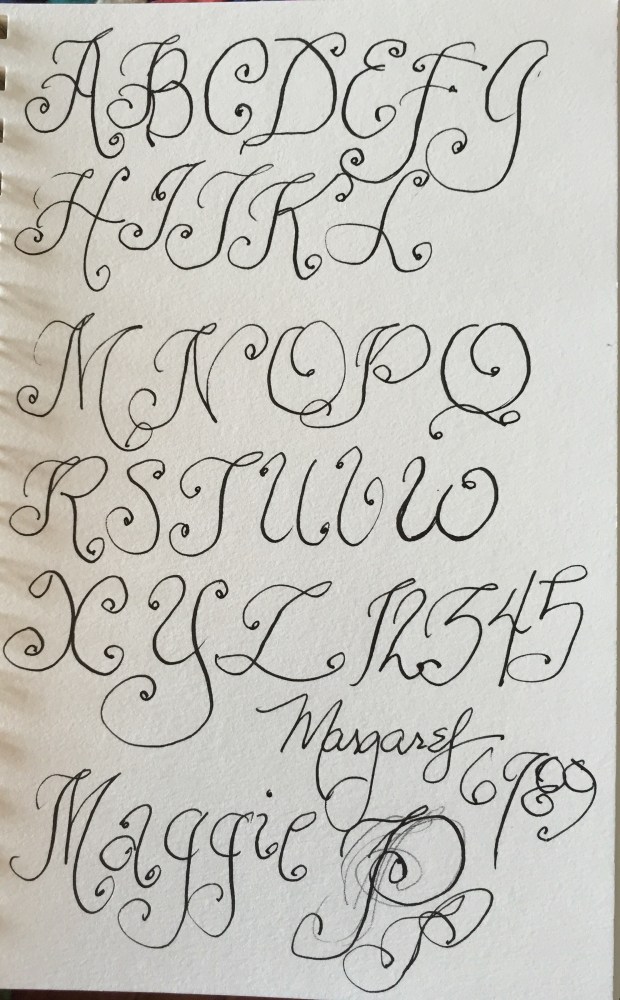 ABCDEFG
HIJKL
MNOPQ
RSTUVW
XYZ 12345
Margaret 6789
Maggie P
P